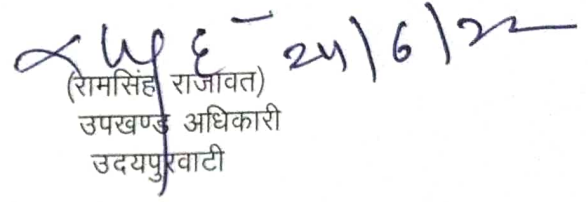 24/6/22
(रामसिंह राजावत)
उपखण्ड अधिकारी
उदयपुरवाटी